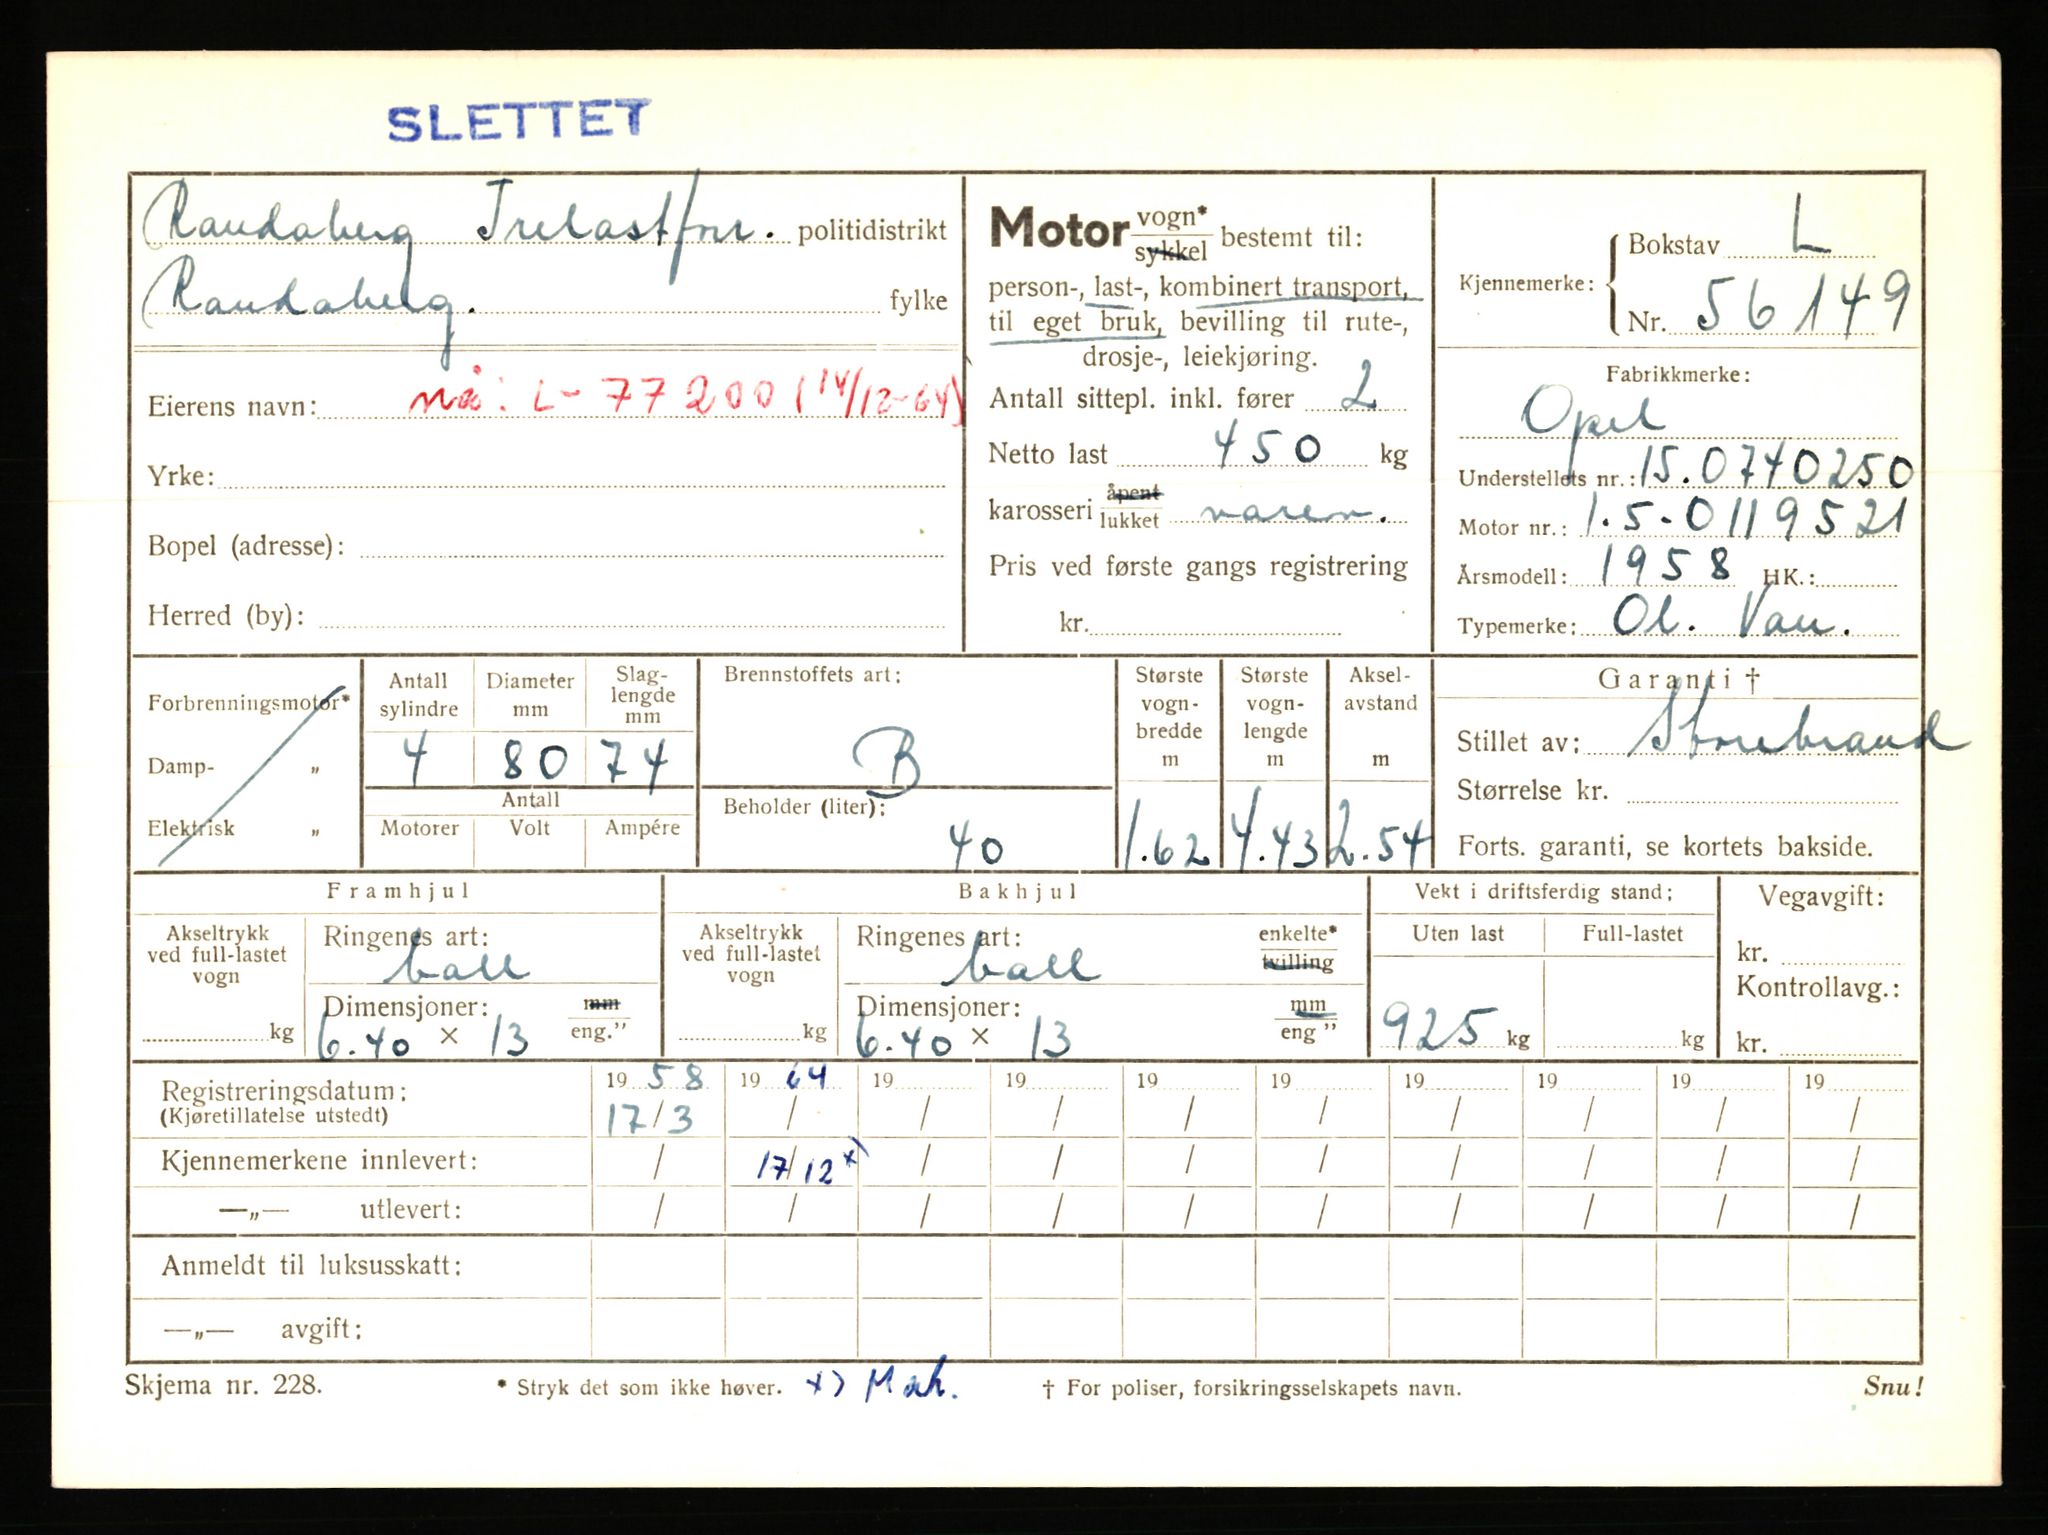 SLETTET
Randaberg Trelastforr. politidistrikt
Randaberg. fylke
Eierens navn: nå: L-77200 (14/12-64)
Yrke:
Bopel (adresse):
Herred (by):
Motor vogn* / sykkel bestemt til:
person-, last-, kombinert transport,
til eget bruk, bevilling til rute-,
drosje-, leiekjøring.
Antall sittepl. inkl. fører 2
Netto last 450 kg
karosseri åpent / lukket varev.
Pris ved første gangs registrering
kr.
Kjennemerke: Bokstav L
Nr. 56149
Fabrikkmerke:
Opel
Understellets nr.: 15.0740250
Motor nr.: 1.5-0119521
Årsmodell: 1958 HK.:
Typemerke: Ol. Van.
Forbrenningsmotor*
Damp- „
Elektrisk „
Antall sylindre 4
Diameter mm 80
Slag-lengde mm 74
Antall
Motorer Volt Ampére
Brennstoffets art: B
Beholder (liter): 40
Største vogn-bredde m 1.62
Største vogn-lengde m 4.43
Aksel-avstand m 2.54
Garanti †
Stillet av: Storebrand
Størrelse kr.
Forts. garanti, se kortets bakside.
Framhjul
Akseltrykk ved full-lastet vogn kg
Ringenes art: ball
Dimensjoner: mm / eng.”
6.40 × 13
Bakhjul
Akseltrykk ved full-lastet vogn kg
Ringenes art: ball enkelte* / tvilling
Dimensjoner: mm / eng ”
6.40 × 13
Vekt i driftsferdig stand:
Uten last Full-lastet
925 kg kg
Vegavgift:
kr.
Kontrollavg.:
kr.
Registreringsdatum: 19 58 19 64 19 19 19 19 19 19 19 19
(Kjøretillatelse utstedt) 17/3 / / / / / / / / /
Kjennemerkene innlevert: / 17/12 x) / / / / / / / /
—„— utlevert: / / / / / / / / / /
Anmeldt til luksusskatt:
—„— avgift:
Skjema nr. 228. * Stryk det som ikke høver. x) Mak. † For poliser, forsikringsselskapets navn. Snu!